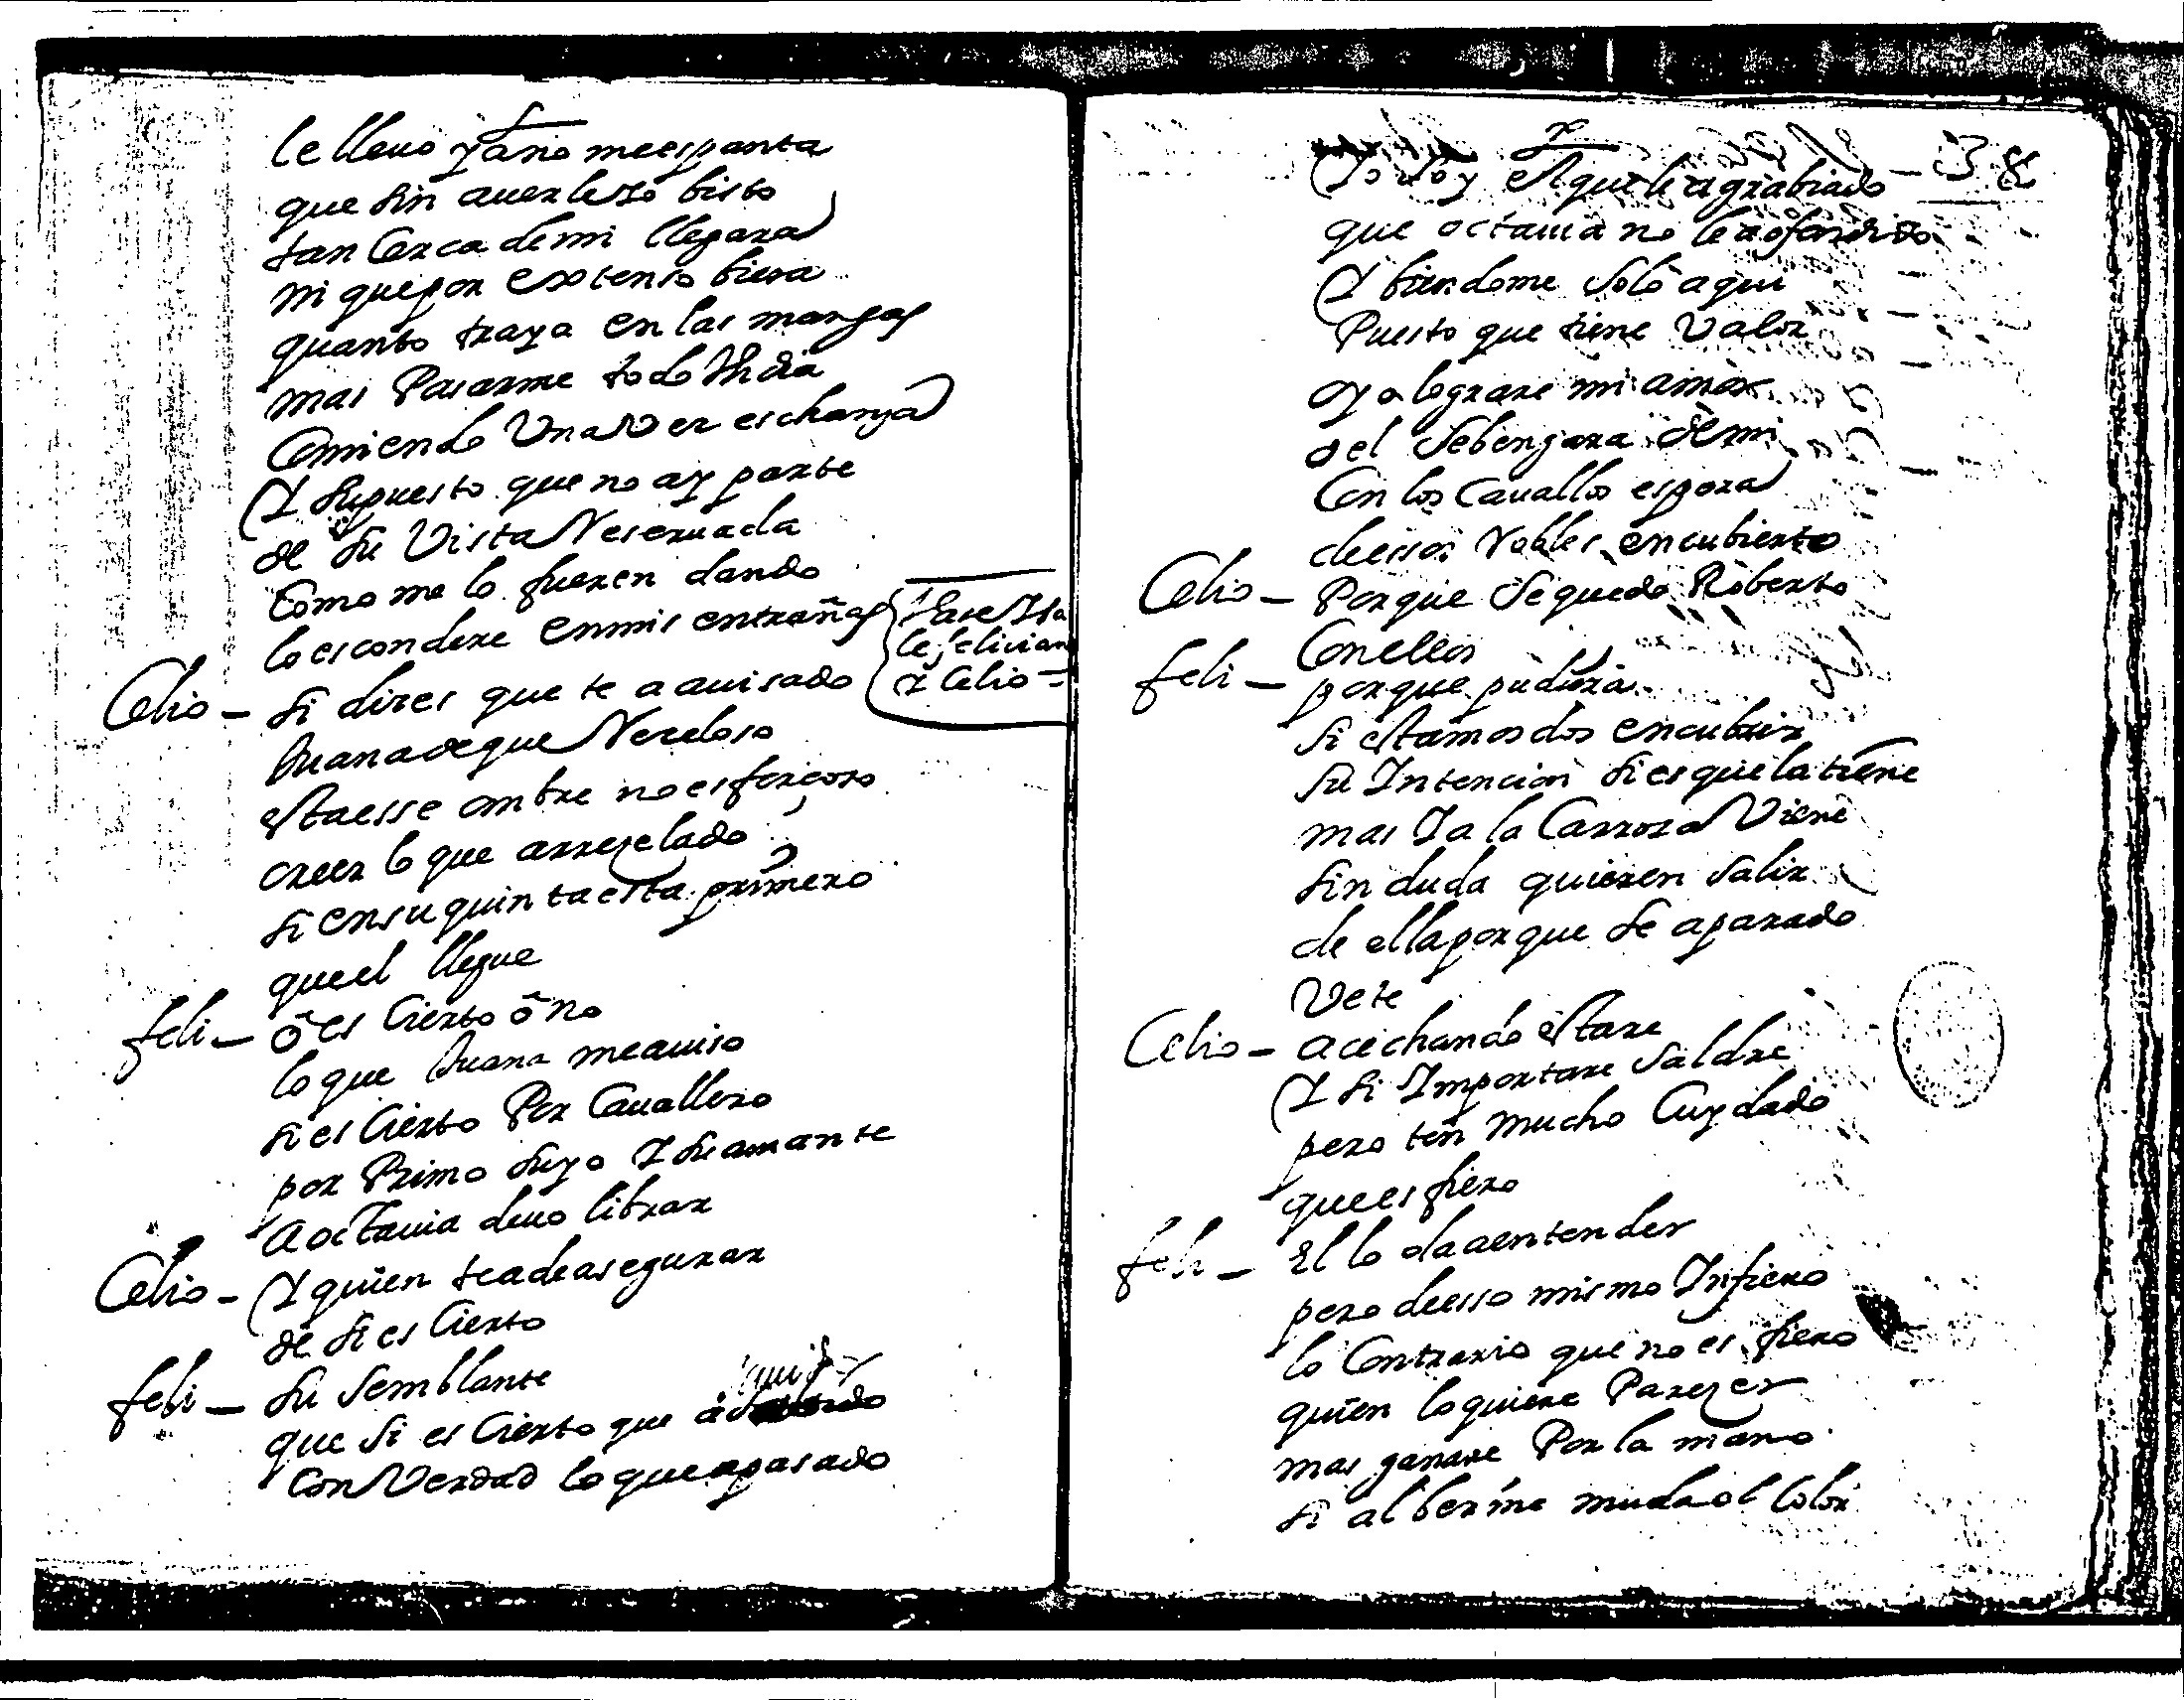 le lleuo yano meespanta
que sin auerle yo bisto
tan Cerca demi llegara
ni quepor extenso biera
quanto traya en las mangas
mas Pasarme todo el dia
Comiendo Una Vez es chança
Y supuesto que no ay parte
de su Vista Reseruada
Como me lo fueren dando
lo escondere enmis entrañas
Vase Ysa
le feliçian
y Celio =
Celio – si dizes que te a auisado
Juana de que Receloso
esta esse ombre no es forçoso
creer lo que arrezelado
si ensu quinta esta primero
queel llegue
feli – ô es Cierto ô no
lo que Juana me auiso
si es Cierto Por Cauallero
por Primo suyo Y su amante
a octauia deuo librar
Celio – Y quien tea de asegurar
de si es Cierto
feli – su semblante
que si es Cierto que a
Con Verdad lo que apasado
38
Yo soy el que le agrabiado
que octauia no le a ofendido
Y biendome solo aqui
Puesto que tiene Valor
oy o lograre mi amor
o el sebengara de mi
Con los Cauallos espera
de essos Robles encubierto
Celio – Porque se quedo Roberto
Con ellos
feli – porque pudiera
si estamos dos encubrir
su Intencion si es que la tiene
mas Ya la Carroza Viene
sin duda quieren salir
de ella porque se a parado
Vete
Celio – acechando estare
Y si Importare saldre
pero ten mucho Cuydado
que es fiero
feli – El lo da a entender
pero de esso mismo Infiero
lo Contrario que no es fiero
quien lo quiere Parezer
mas ganare Por la mano
si al berme muda el Color